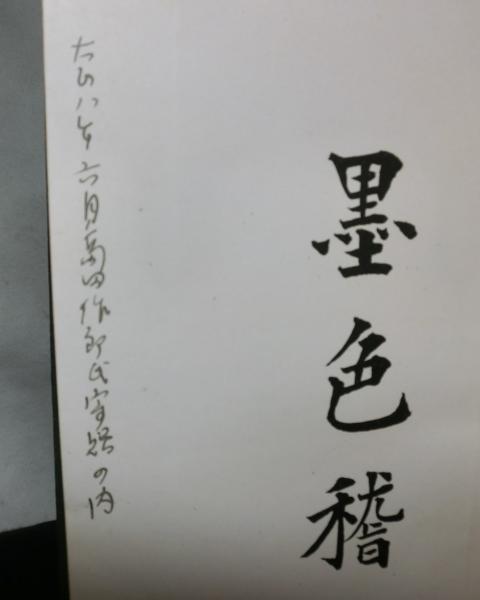 墨色稽
大正八年六月田作郎氏寄贈の内